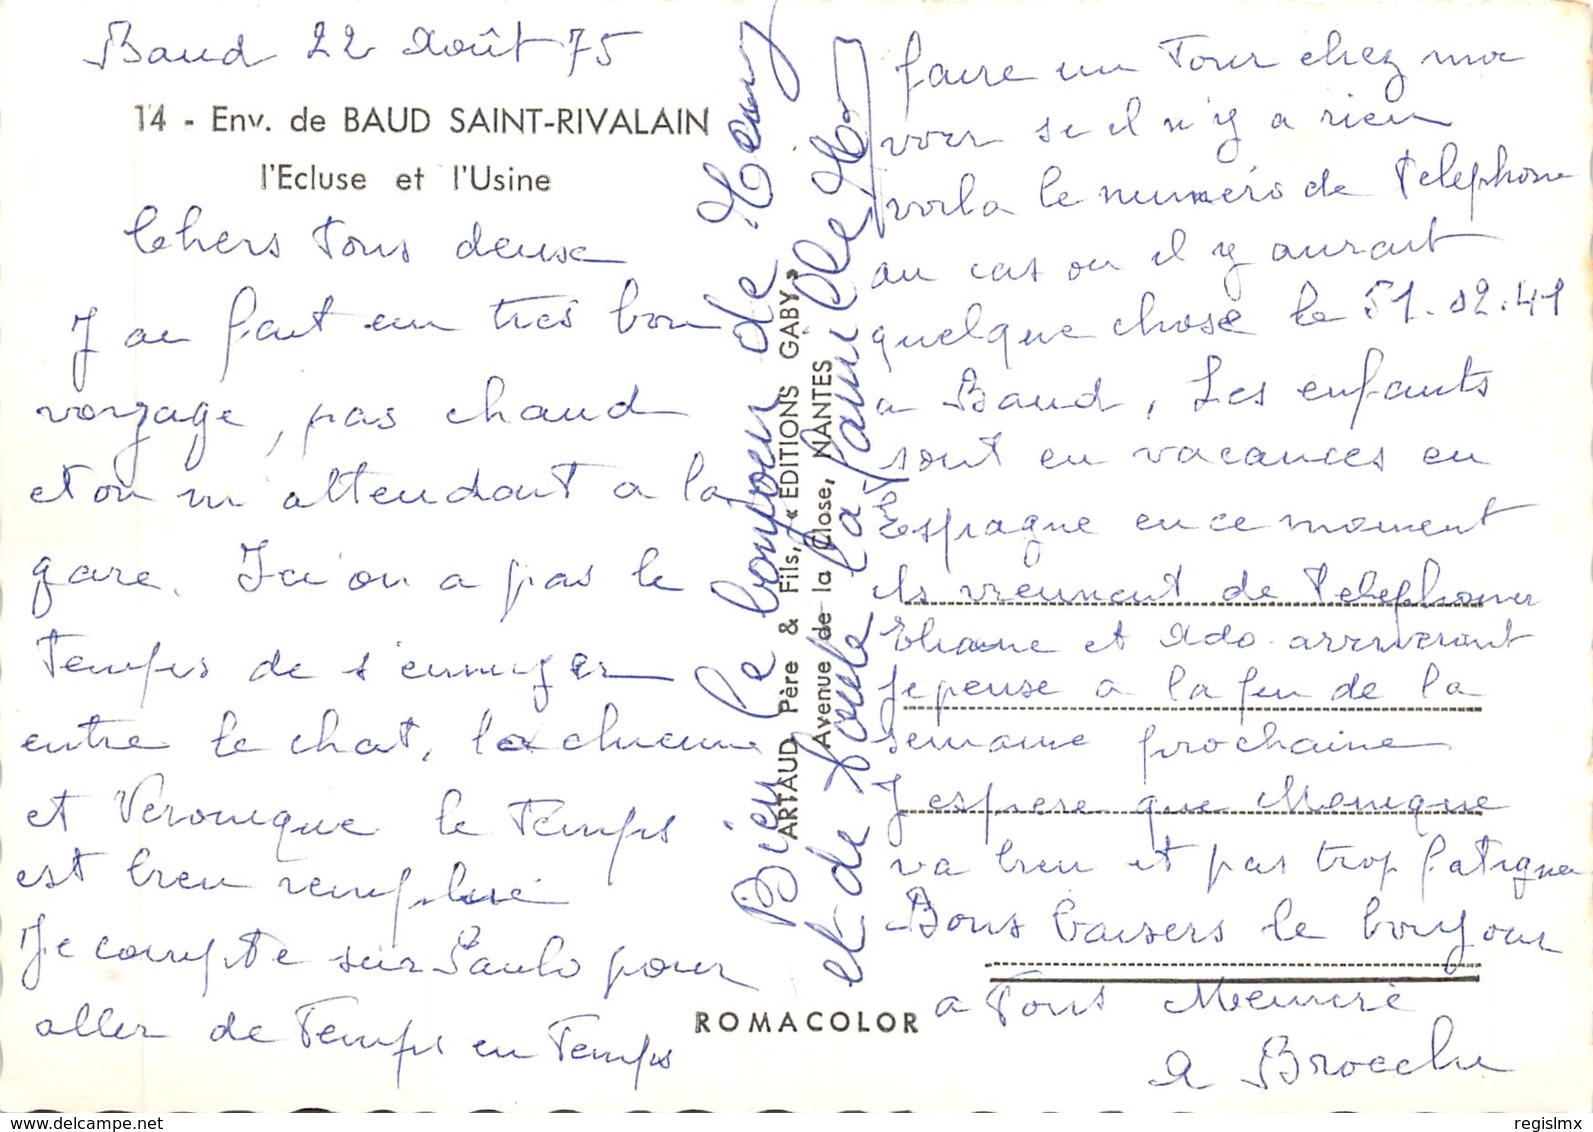 Baud 22 Août 75
14 - Env. de BAUD SAINT-RIVALAIN
l'Ecluse et l'Usine
Chers Tous deux
J ai fait un très bon
voyage, pas chaud
et on m attendait a la
gare. Ici on a pas le
Temps de s'ennuyer
entre le chat, la chienne
et Veronique le Temps
est bien remplie
Je compte sur Paulo pour
aller de Temps en Temps
faire un Tour chez moi
voir si il n'y a rien
voila le numéro de Telephone
au cas ou il y aurait
quelque chose le 51.02.41
a Baud, Les enfants
sont en vacances en
Espagne en ce moment
ils viennent de Telephoner
Eliane et Ado arriveront
je pense a la fin de la
semaine prochaine
J espere que Monique
va bien et pas trop fatiguée
Bons baisers le bonjour
a Tous Memère
a
Bien le bonjour de
et de toute la famille
ARTAUD Père & Fils, « EDITIONS GABY »
Avenue de la Close, NANTES
ROMACOLOR
delcampe.net
regislmx